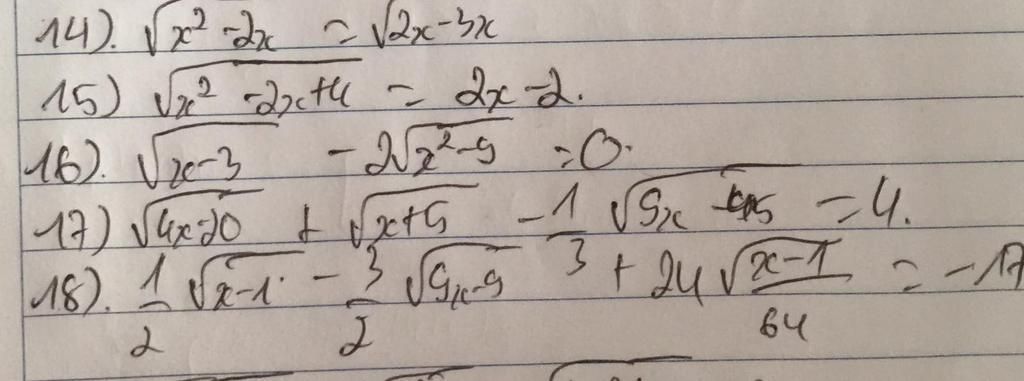 14). √(x² - 2x) = √(2x - 3x)
15) √(x² - 2x + 4) = 2x - 2.
16). √(x - 3) - 2√(x² - 9) = 0.
17) √(4x - 20) + √(x + 5) - 1/3 √(9x - 45) = 4.
18). 1/2 √(x - 1) - 3/2 √(9x - 9) + 24 √((x - 1)/64) = -17